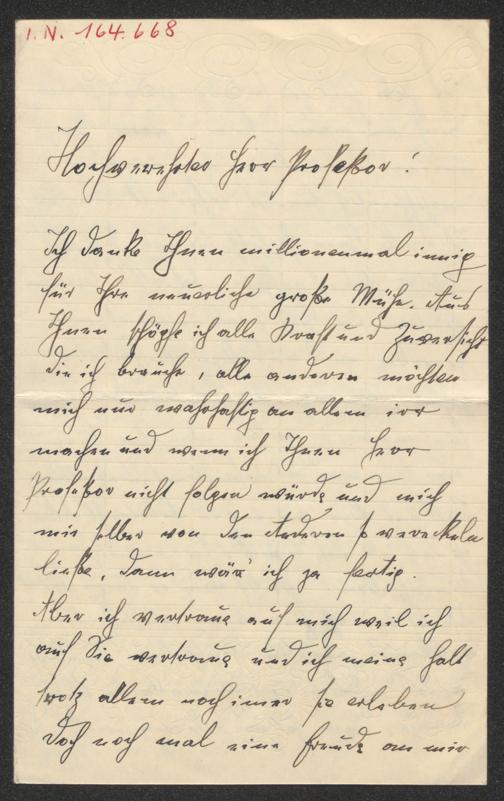 I.N. 164.668
Hochverehrter Herr Professor!
Ich danke Ihnen millionenmal innig
für Ihre neuerliche große Mühe. Aus
Ihnen schöpfe ich alle Kraft und Zuversicht
die ich brauche, alle anderen möchten
mich nur wahrhaftig an allem irr
machen und wenn ich Ihnen Herr
Professor nicht folgen würde und mich
mir selber von den Anderen so verekeln
ließe, dann wär' ich ja fertig.
Aber ich vertraue auf mich weil ich
auf Sie vertraue und ich meine halt
trotz allem noch imer Sie erleben
doch noch mal eine Freude an mir